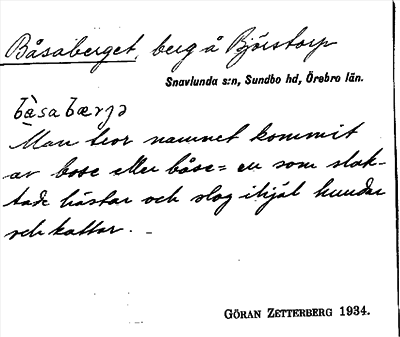 Båsaberget, berg å Björstorp
Snavlunda s:n, Sundbo hd, Örebro län.
bæ̀sabærjə
Man tror namnet kommit
av bose eller båse = en som slak-
tade hästar och slog ihjäl hundar
och kattor. –
GÖRAN ZETTERBERG 1934.